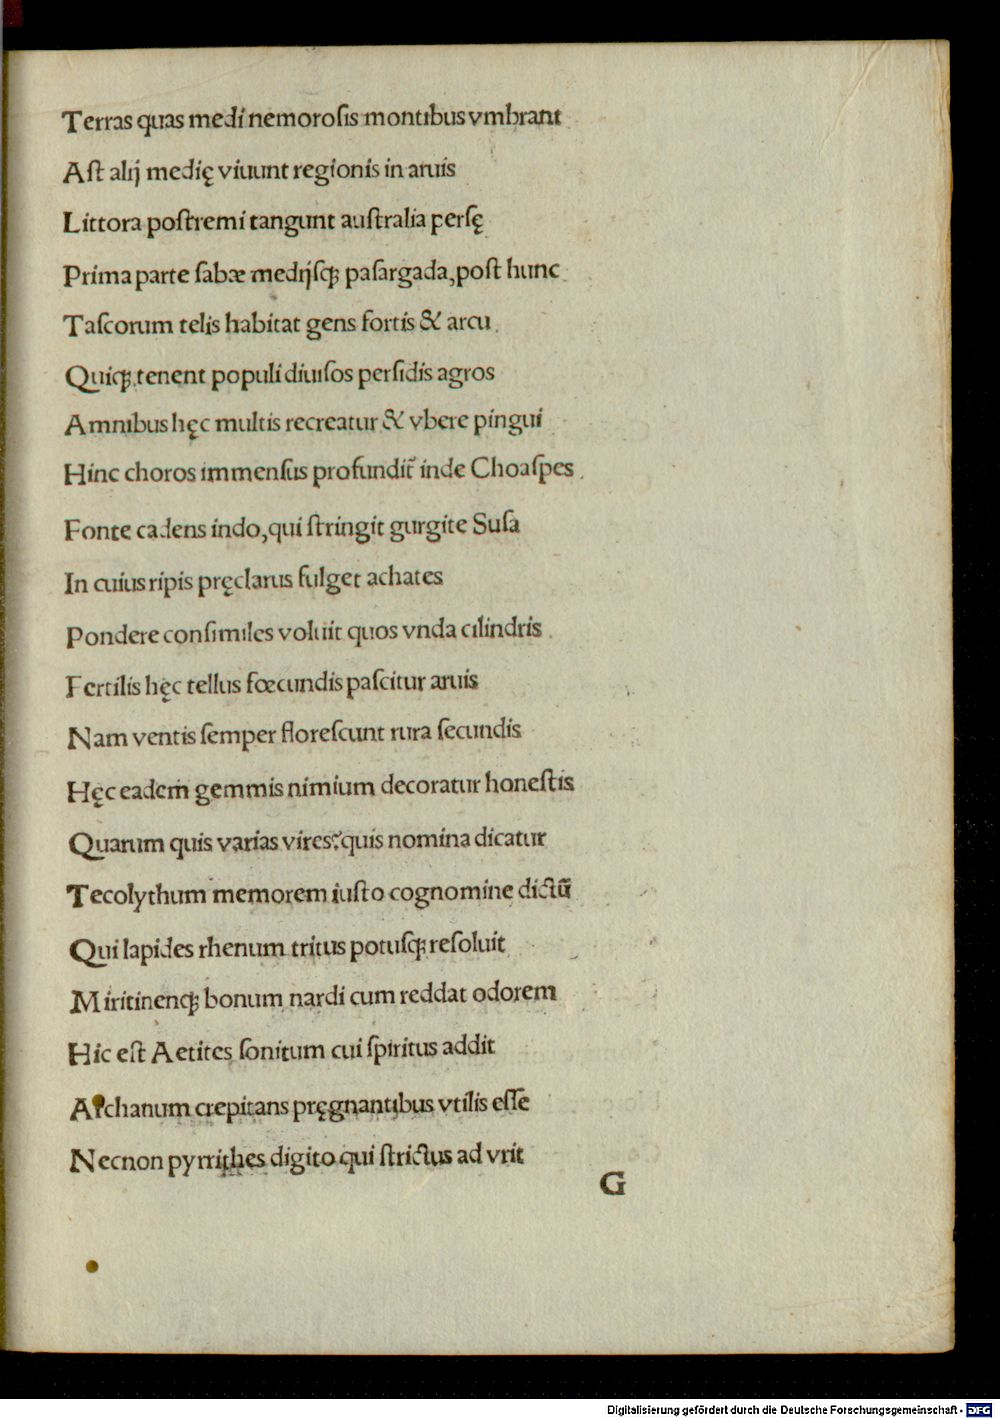 Terras quas medi nemorosis montibus vmbrant
Aſt alij medię viuunt regionis in aruis
Littora poſtremi tangunt auſtralia perſę
Prima parte ſabæ medijſqꝫ paſargada, poſt hunc
Taſcorum telis habitat gens fortis & arcu.
Quiqꝫ tenent populi diuiſos perſidis agros
Amnibus hęc multis recreatur & vbere pingui
Hinc choros immenſus profundit᷑ inde Choaſpes.
Fonte cadens indo, qui ſtringit gurgite Suſa
In cuius ripis pręclarus fulget achates
Pondere conſimiles voluit quos vnda cilindris.
Fertilis hęc tellus fœcundis paſcitur aruis
Nam ventis ſemper floreſcunt rura ſecundis
Hęc eadem gemmis nimium decoratur honeſtis
Quarum quis varias vires? quis nomina dicatur
Tecolythum memorem iuſto cognomine dictū
Qui lapides rhenum tritus potuſqꝫ reſoluit
Miritinenqꝫ bonum nardi cum reddat odorem
Hic eſt Aetites ſonitum cui ſpiritus addit
Archanum crepitans pręgnantibus vtilis eſſe
Necnon pyrrithes digito qui ſtrictus ad vrit
G
Digitalisierung gefördert durch die Deutsche Forschungsgemeinschaft - DFG